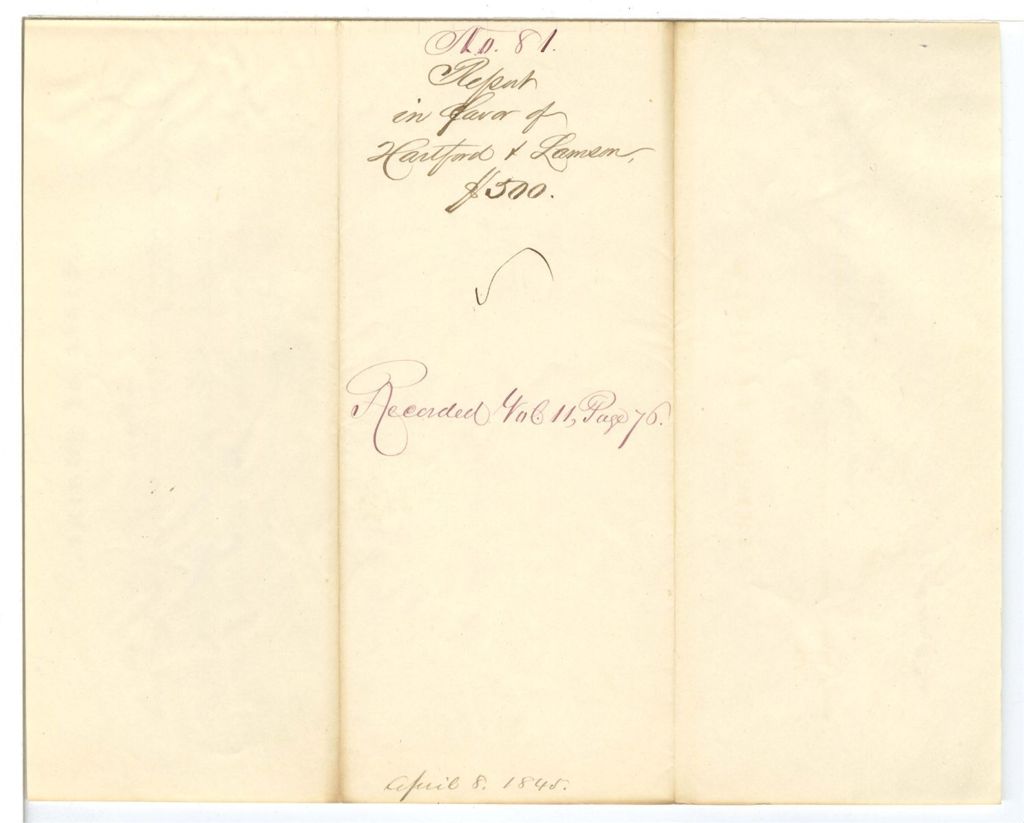 No. 81.
Report
in favor of
Hartford & Lamson,
$500.
Recorded Vol. 11, Page 76.
April 8. 1845.